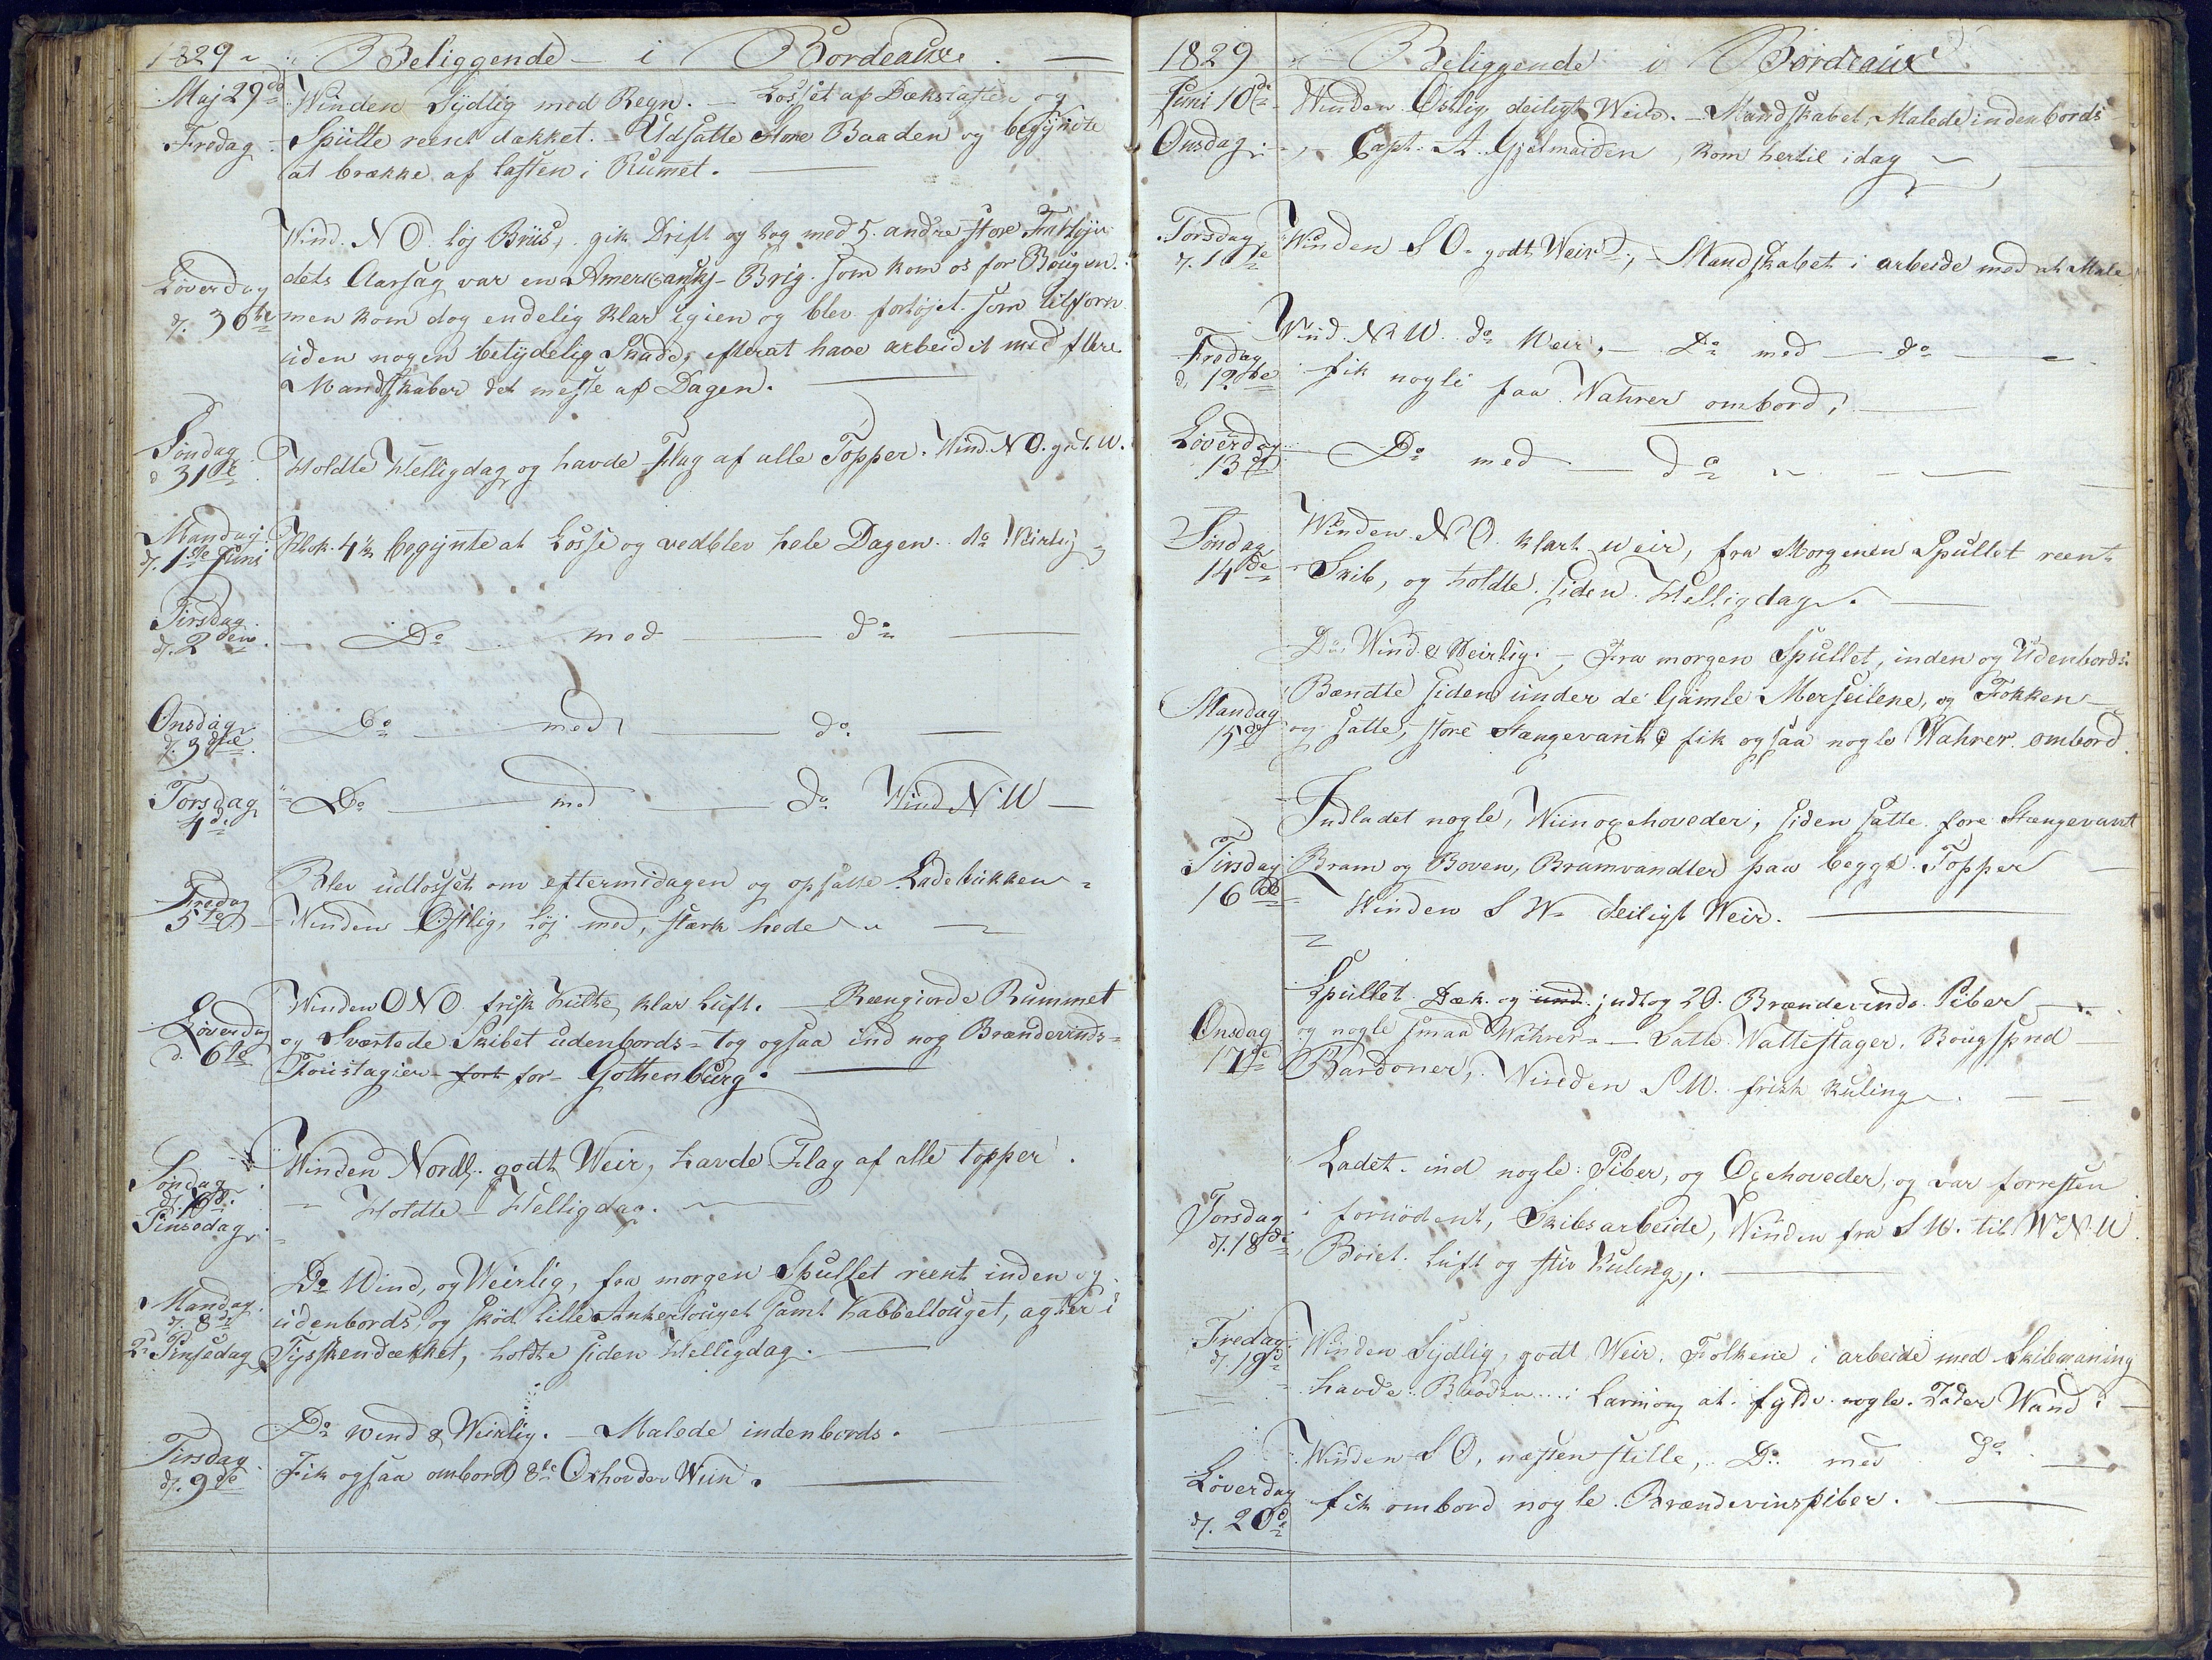 1829 Beliggende i Bordeaux.
Maj 29de Winden Sydlig med Regn. Losset af Dækslasten og
Fredag Spulte reent dækket. Udsatte store Baaden og begyndte
at brække af lasten i Rummet.
Wind. N O. løj Briis, gik Drift og tog med 5 andre store
Løverdag dets Aarsag var en Amerikansk Brig som kom os for Bougen
d. 30te men kom dog endelig klar igien og blev fortøjet som tilforn
uden nogen betydelig Skade, efterat have arbeidet med flere
Mandskaber det meste af Dagen.
Søndag
d 31te Holdte Helligdag og havde Flag af alle Topper. Wind N O. gdt. W.
Mandag
d. 1ste Juni Klok. 4½ begynte at Losse og vedblev hele Dagen. do Veirlig
Tirsdag
d. 2den Do med do
Onsdag
d. 3die Do med do
Torsdag
4de Do med do Wind N W
Blev udlosset om eftermidagen og opsatte Ladebukken
Fredag
5te Winden Østlig, løj med, stærk hede
Winden O N O. frisk Kulte, klar Luft. Reengiorde Rummet
Løverdag
d. 6te og Sværtede Skibet udenbords - tog ogsaa ind nog Brændevinds-
Foustagier fort for Gothenburg.
Winden Nordl. godt Weir, havde Flag af alle topper.
Søndag
Pinsedag Holdte Helligdag.
Do Wind, og Weirlig, fra morgen Spullet reent inden og
Mandag
d. 8de udenbords, og skød lille Ankertouget samt Kabbeltouget, agter i
2d Pinsedag Tysskendækket, holdte siden Helligdag.
Do wind & Weirlig. Malede indenbords.
Tirsdag
d. 9de Fik ogsaa ombord 8te Oxhovder Wiin.
1829 Beliggende i Bordeaux
Juni 10de Winden Østlig deiligt Weir. Mandskabet, Malede indenbords
Onsdag Capt. A. Gjelmarden, kom hertil idag
Torsdag
d. 11te Winden S O. godt Weir, Mandskabet i arbeide med at Male
Wind N W. do Weir, Do med do
Fredag
d. 12te fik nogle faa Wahrer ombord,
Løverdag
13de Do med do
Winden N O. klart weir, fra Morgenen Spullet reent
Søndag
14de Skib, og holdte siden Helligdag.
Do Wind & Veirlig. Fra morgen Spullet, inden og Udenbords.
Bændte siden under de Gamle Merseilene, og Fokken
Mandag
15de og satte, store Stængevant & fik ogsaa nogle Wahrer ombord.
Indladet nogle, Wiin oxehoveder, siden satte fore Stængevant
Tirsdag Bram og Boven, Bramvandter paa begge Topper
16de Winden S W. deiligt Weir.
Spullet Dæk og ind. indtog 20. Brændevinds Piber
Onsdag og nogle smaa Wahrer. Vatte Vattestager, Bougspred
17de Bardoner, Winden S W. frisk Kuling.
Ladet ind nogle Piber, og Oxehoveder, og var forresten
Torsdag i fornødent, Skibsarbeide, Winden fra S W. til W N. W.
d. 18de Luft og stiv Kuling,
Fredag Winden Sydlig, godt Weir. Folkene i arbeide med Skibmaning
d. 19de havde Baaden i at fylde nogle Fader Wand i
Winden S O, næsten stille, Do med do
Løverdag
d. 20de fik ombord nogle Brændevinspiber.